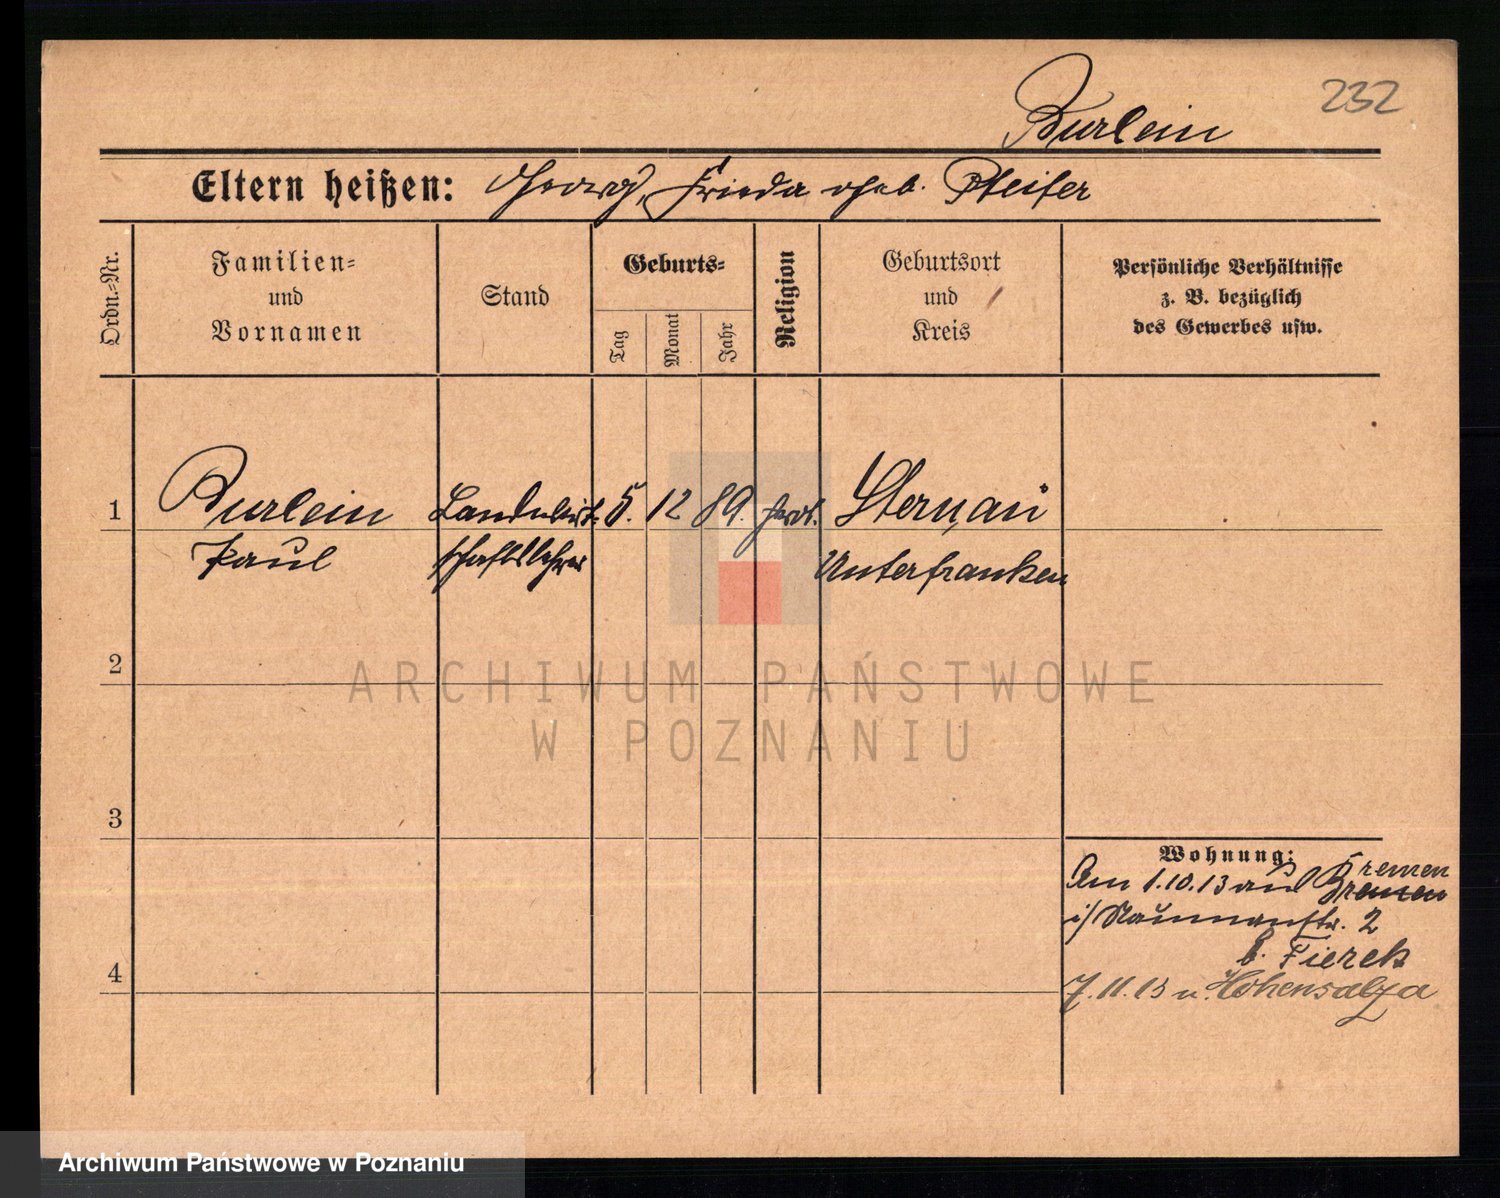 232
Burlein
Eltern heißen: Georg, Frieda geb. Pfeifer
Ordn.=Nr.
Familien=
und
Vornamen
Stand
Geburts=
Tag
Monat
Jahr
Religion
Geburtsort
und
Kreis
Persönliche Verhältnisse
z. B. bezüglich
des Gewerbes usw.
1
Burlein
Paul
Landwirt-
schaftslehrer
5. 12 89.
Unterfranken
2
3
4
Wohnung:
Am 1.10.13 aus Bremen
Kremen
i/ Naumannstr. 2
b. Fierek
7.11.13 n. Hohensalza
ARCHIWUM PAŃSTWOWE
W POZNANIU
Archiwum Państwowe w Poznaniu